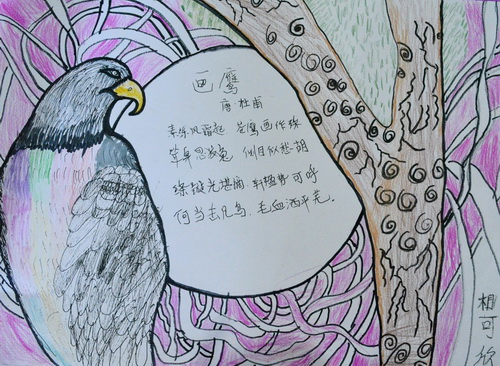 画鹰
唐 杜甫
素练风霜起 苍鹰画作殊
身思狡兔 侧目似愁胡
绦镟光堪摘 轩楹势可呼
何当击凡鸟、毛血洒平芜。
相可